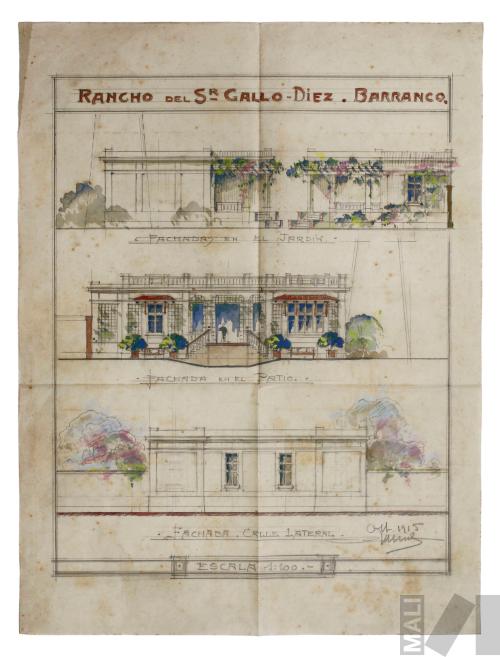 RANCHO DEL SR GALLO-DIEZ. BARRANCO.
FACHADAS EN EL JARDIN.
FACHADA EN EL PATIO.
FACHADA. CALLE LATERAL.
1915
ESCALA 1:100.-
MALI